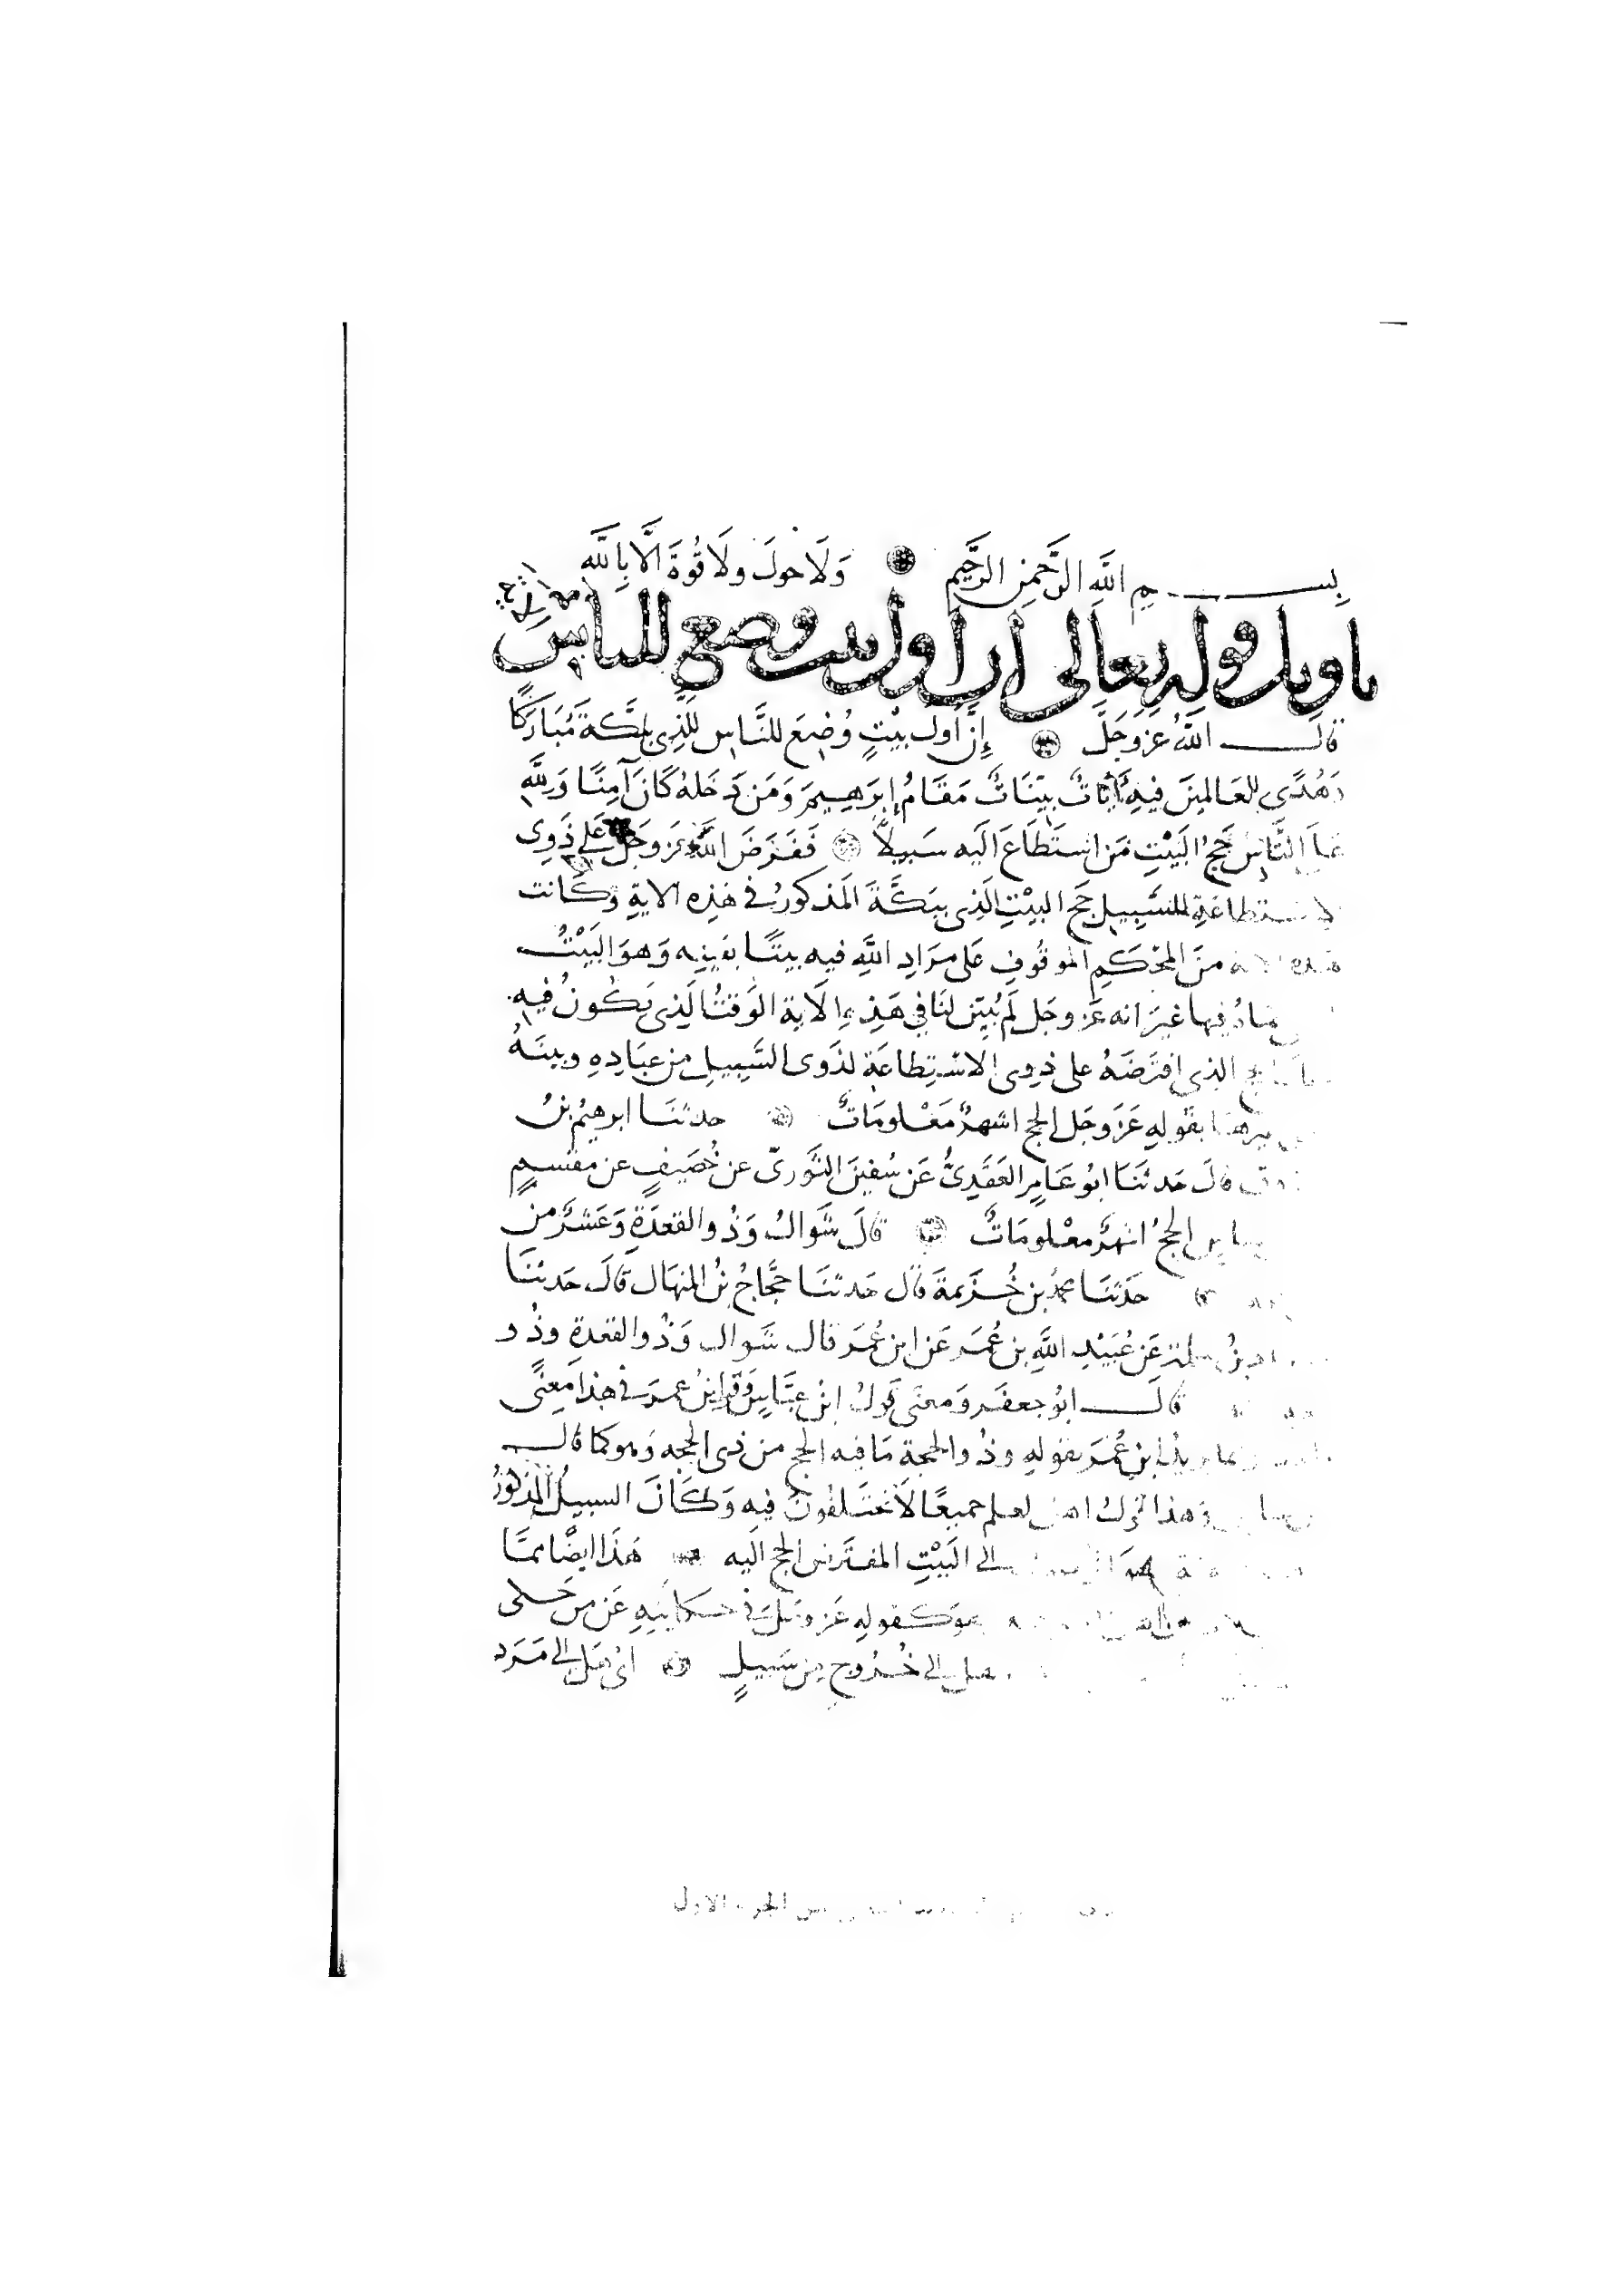 بسم الله الرحمن الرحيم ولا حول ولا قوة الا بالله
تاويل قوله تعالى ان اول بيت وضع للناس
قال الله عز وجل إن أول بيت وضع للناس للذي ببكة مباركا
وهدى للعالمين فيه آيات بينات مقام إبرهيم ومن دخله كان آمنا ولله
على الناس حج البيت من استطاع اليه سبيلا ففرض الله عز وجل على ذوي
الاستطاعة للسبيل حج البيت الذي ببكة المذكور في هذه الاية وكانت
هذه الاية من المحكم الموقوف على مراد الله فيه بيتا بعينه وهو البيت
فيها غير انه عز وجل لم يبين لنا في هذه الاية الوقت الذي يكون فيه
الذي افترضه على ذوي الاستطاعة لذوي السبيل من عباده وبينه
بقوله عز وجل الحج اشهر معلومات حدثنا ابرهيم بن
قال حدثنا ابو عامر العقدي عن سفين الثوري عن خصيف عن مقسم
الحج اشهر معلومات قال شوال وذو القعدة وعشر من
حدثنا محمد بن خزيمة قال حدثنا حجاج بن المنهال قال حدثنا
بن سلمة عن عبيد الله بن عمر عن ابن عمر قال شوال وذو القعدة وذو
قال ابو جعفر ومعنى قول ابن عباس وقول ابن عمر في هذا معنى
ابن عمر بقوله وذو الحجة ما فيه الحج من ذي الحجه وهو كما قال
وهذا قول اهل العلم جميعا لا يختلفون فيه وكان السبيل المذكور
الى البيت المفترض الحج اليه هذا ايضا مما
هو كقوله عز وجل في حكايته عن من حكى
هل الى خروج من سبيل اي هل الى مرد
الجزء الاول